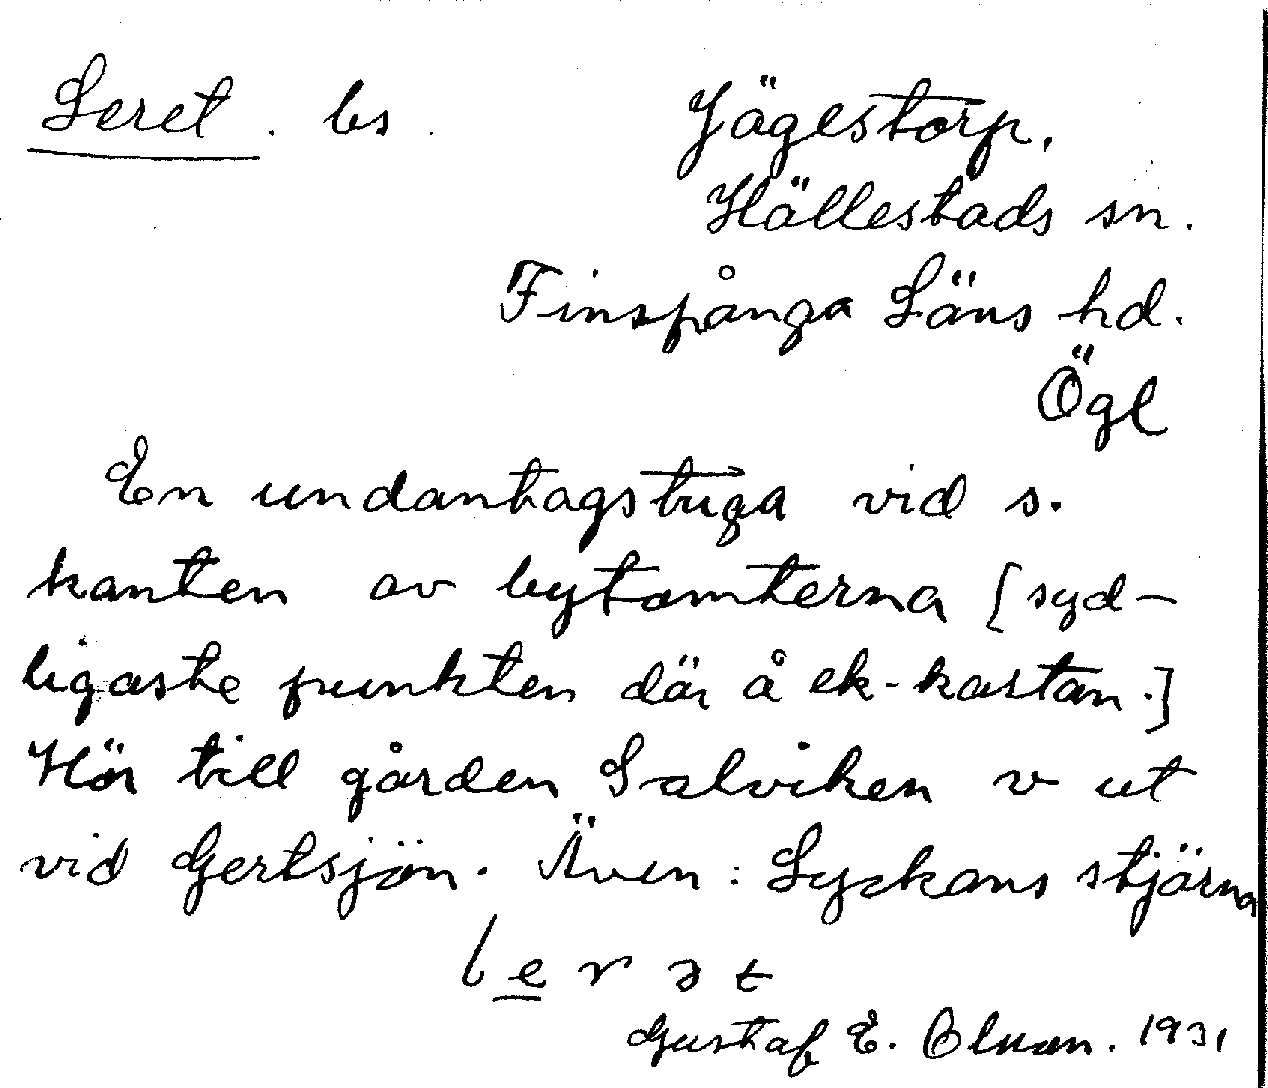 Leret. bs.
Jägestorp.
Hällestads sn.
Finspånga Läns hd.
Ögl
En undantagstuga vid s.
kanten av bytomterna [syd-
ligaste punkten där å ek-kartan.]
Hör till gården Salviken v ut
vid Gertsjön. Även: Lyckans stjärna
lerət
Gustaf E. 1931